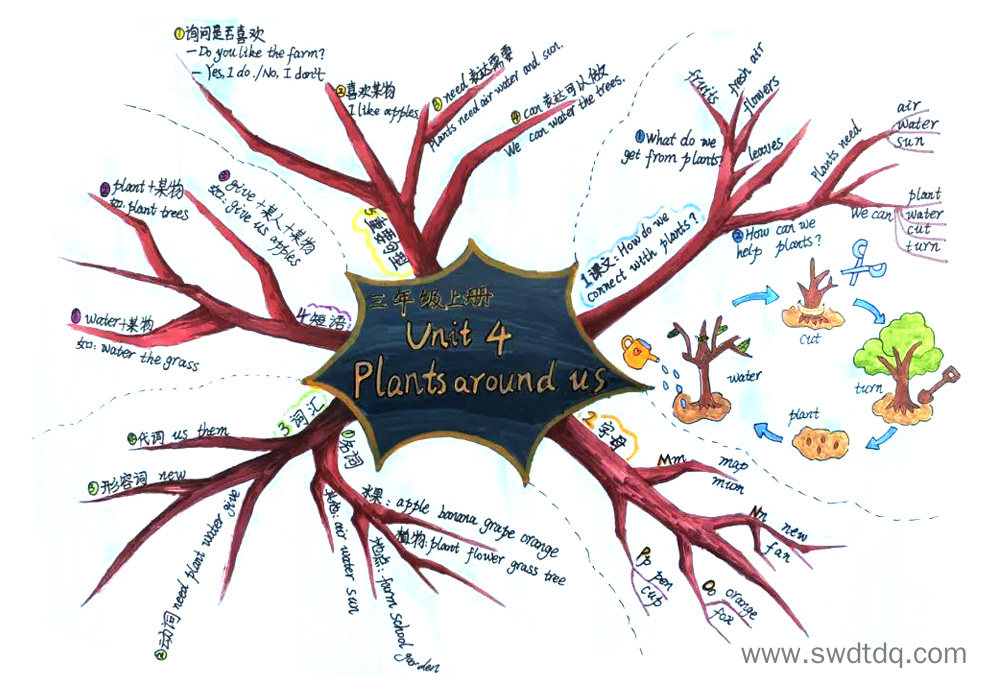 三年级上册
Unit 4
Plants around us
1 课文：How do we
connect with plants？
① What do we
get from plants？
fruits
fresh air
flowers
leaves
② How can we
help plants？
Plants need
air
water
sun
We can
plant
water
cut
turn
cut
turn
plant
water
2 字母
Mm
map
mum
Nn
new
fan
Oo
orange
fox
Pp
pen
cup
3 词汇
① 名词
水果：apple banana grape orange
植物：plant flower grass tree
地点：farm school garden
其他：air water sun
② 动词 need plant water give
③ 形容词 new
④ 代词 us them
4 短语
① water+某物
如：water the grass
② plant+某物
如：plant trees
③ give+某人+某物
如：give us apples
5 重要句型
① 询问是否喜欢
—Do you like the farm?
—Yes, I do./No, I don't
② 喜欢某物
I like apples.
③ need 表达需要
Plants need air water and sun.
④ can 表达可以做
We can water the trees.
www.swdtdq.com